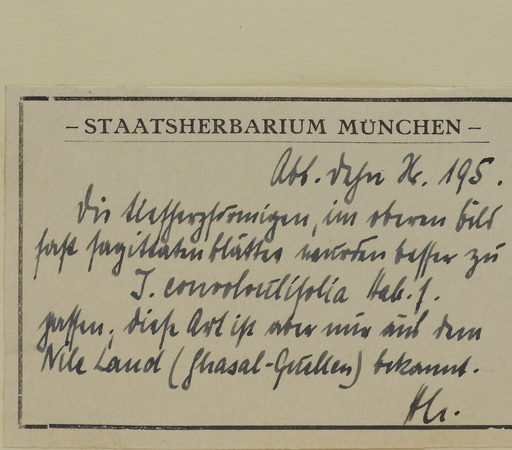 – STAATSHERBARIUM MÜNCHEN –
Abb. Dehn Nr. 195.
Die messerförmigen, im oberen Bild
fast sagittaten Blätter würden besser zu
I. convolvulifolia Hall. f.
passen; diese Art ist aber nur aus dem
Nile Land (Ghasal-Quellen) bekannt.